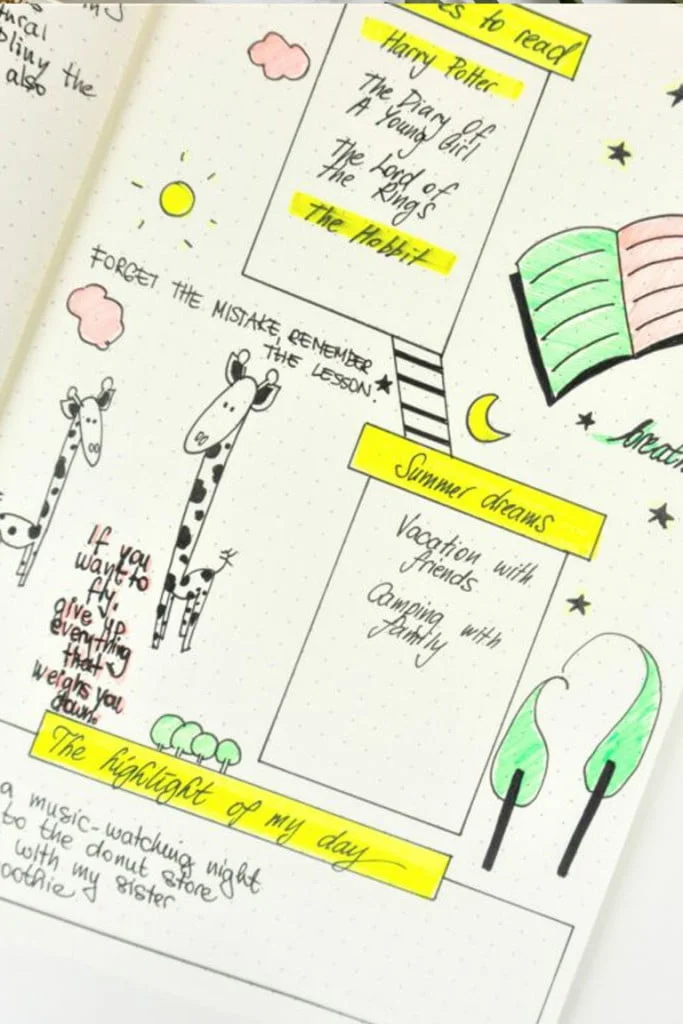 also
to read
Harry Potter
The Diary of
A Young Girl
The Lord of
the Rings
The Hobbit
FORGET THE MISTAKE, REMEMBER
THE LESSON.
Summer dreams
Vacation with
friends
Camping with
family
If you
want to
fly,
give up
everything
that
weighs you
down.
The highlight of my day
a music-watching night
to the donut store
with my sister